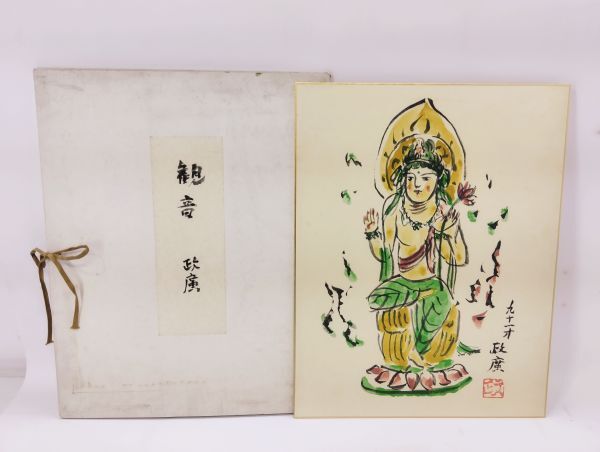 観音
政廣
九十一才
政廣